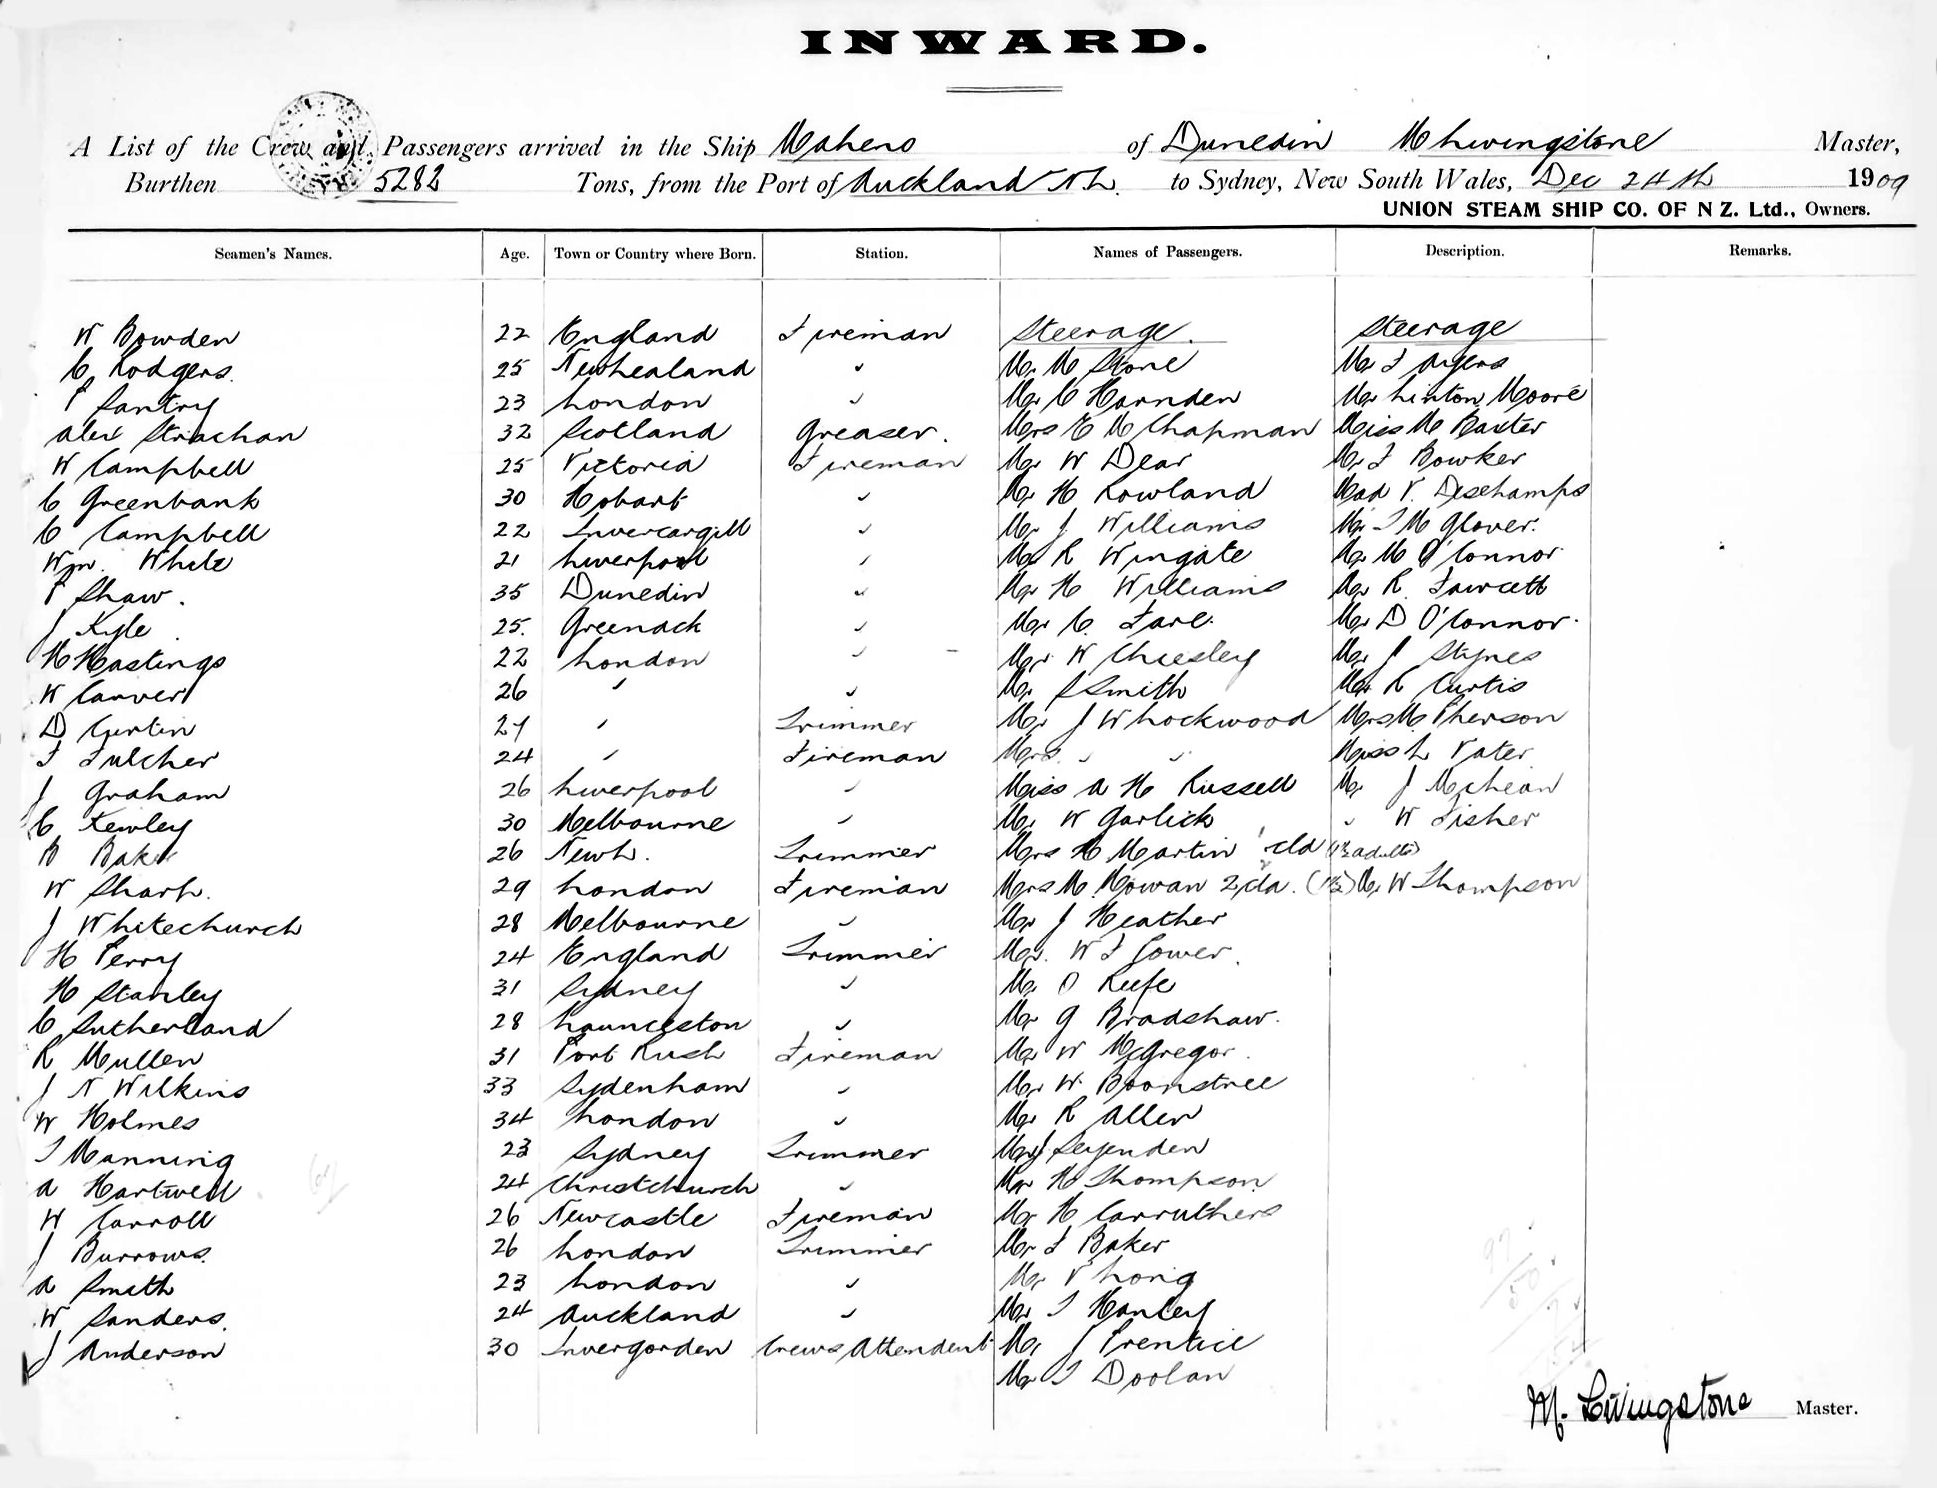 INWARD.
A List of the Crew and Passengers arrived in the Ship Maheno of Dunedin M Livingstone Master,
Burthen 5282 Tons, from the Port of Auckland N.Z. to Sydney, New South Wales, Dec 24th 1909
UNION STEAM SHIP CO. OF N Z. Ltd., Owners.
Seamen's Names. Age. Town or Country where Born. Station. Names of Passengers. Description. Remarks.
W Bowden 22 England Fireman Steerage. Steerage
C Rodgers. 25 New Zealand " Mr M Stone Mr F Ayers
P Santry 23 London " Mr C Harnden Mr Linton Moore
Alex Strachan 32 Scotland Greaser. Mrs E M Chapman Miss M Baxter
W Campbell 25 Victoria Fireman Mr W Dear Mr F Bowker
C Greenbank 30 Hobart " Mr H Rowland Mad V. Deschamps
C Campbell 22 Invercargill " Mr J Williams Mr T M Glover.
Wm. White 21 Liverpool " Mr R Wingate Mr M O'Connor
P Shaw. 35 Dunedin " Mr H Williams Mr R. Fawcett
J Kyle 25. Greenock " Mr C. Mr D O'Connor.
H Hastings 22 London " Mr W Chiesley Mr J Stynes
W Carver 26 " " Mr S Smith Mr R Curtis
D Curtin 27 " Trimmer Mr J W Lockwood Mrs McPherson
F Fulcher 24 " Fireman Mrs " " Miss L Vater
J Graham 26 Liverpool " Miss A H Russell Mr J McLean
C Kewley 30 Melbourne " Mr W Garlick " W Fisher
B Baker 26 New Z. Trimmer Mrs H Martin 1 cld (1½ adults)
W Sharp. 29 London Fireman Mrs M Mowan 2 cld. Mr W Thompson
J Whitechurch 28 Melbourne " Mr J Heather
H Perry 24 England Trimmer Mr. W F Gower.
H Stanley 31 Sydney " Mr O Keefe
C Sutherland 28 Launceston " Mr G Bradshaw.
R Mullen 31 Port Rush Fireman Mr W McGregor.
J N Wilkins 33 Sydenham " Mr W. Boonstree
W Holmes 34 London " Mr R Allen
T Manning 23 Sydney Trimmer Mr J
A Hartwell 24 Christchurch " Mr H Thompson
W Carroll 26 Newcastle Fireman Mr H Carruthers
J Burrows. 26 London Trimmer Mr F Baker
A Smith 23 London " Mr V Long
W Sanders. 24 Auckland " Mr T Hanley
J Anderson 30 Invergorden Crews Attendent Mr J Prentice
Mr T Doolan
M. Livingstone Master.